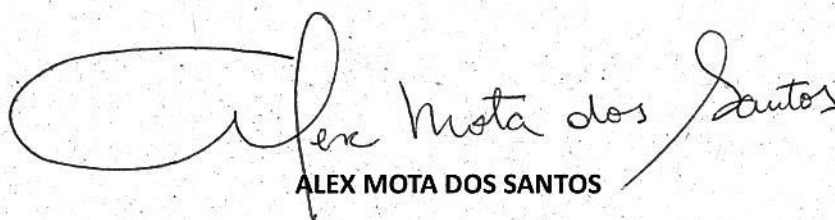 Alex Mota dos Santos
ALEX MOTA DOS SANTOS